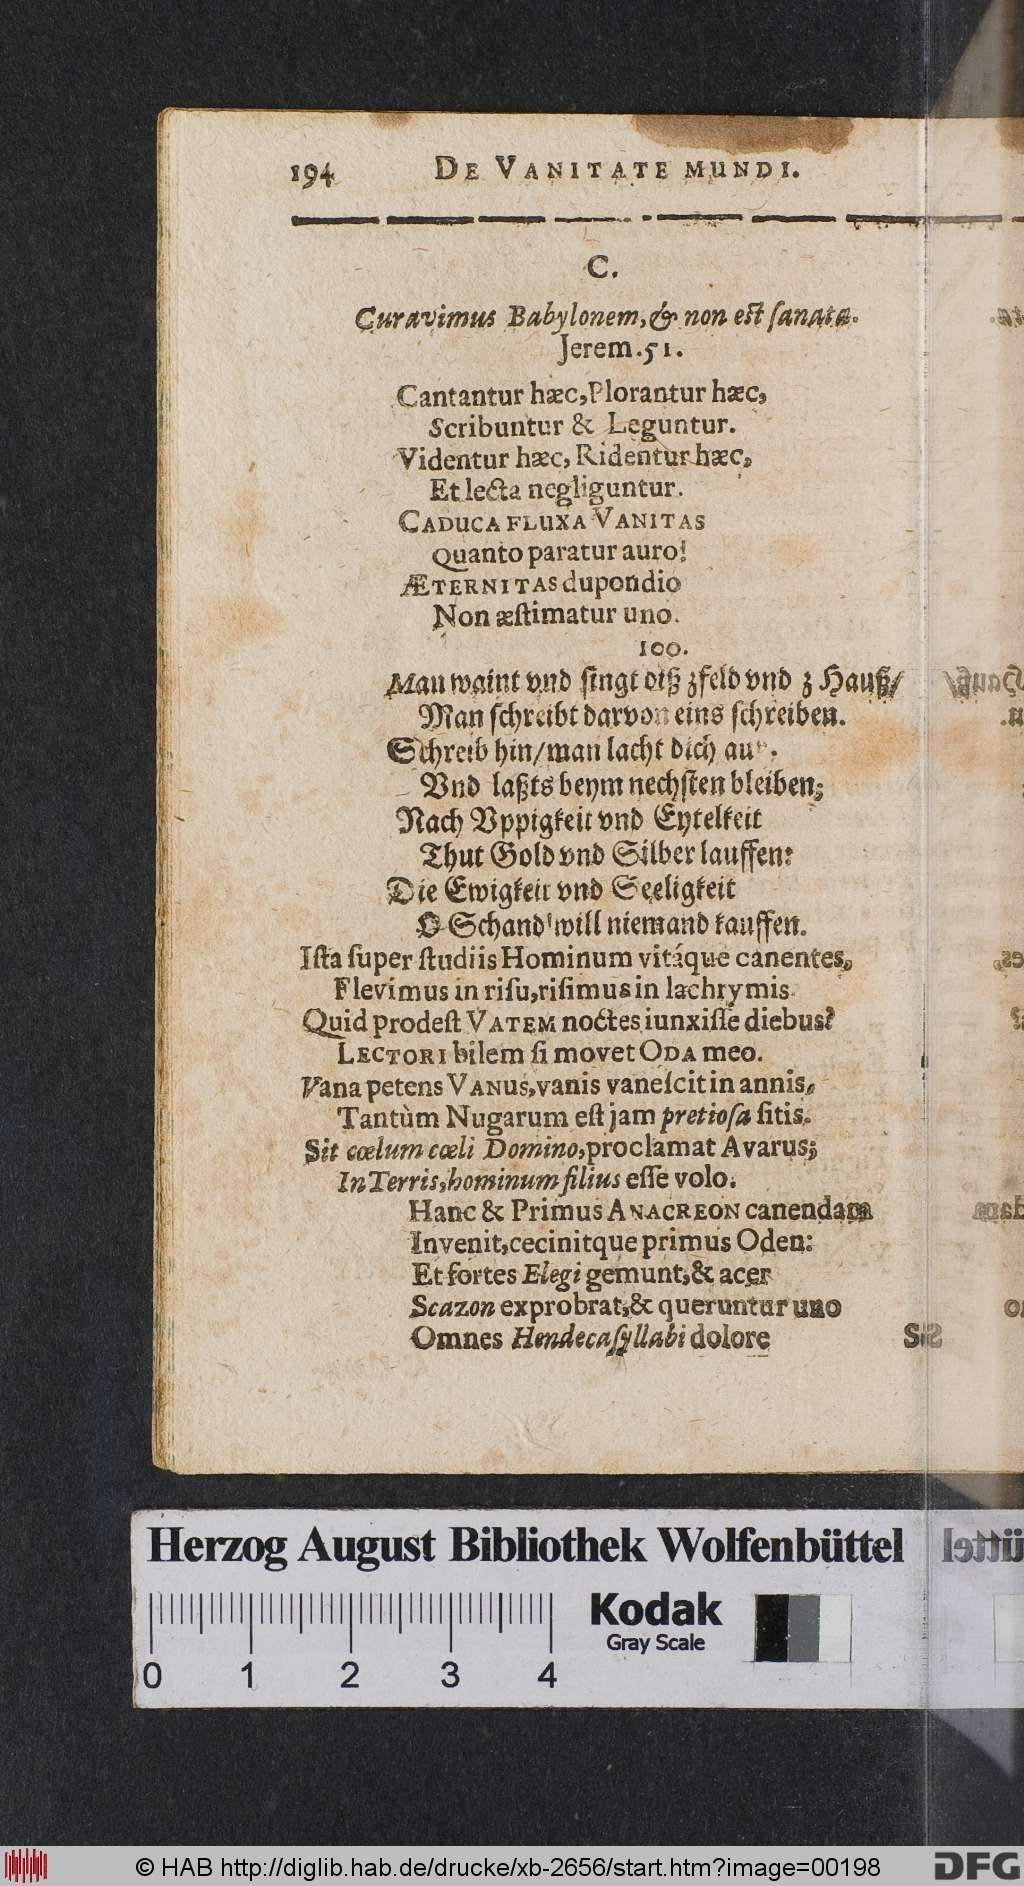 194 DE VANITATE MUNDI.
C.
Curavimus Babylonem, & non est sanata.
Jerem. 51.
Cantantur hæc, Plorantur hæc,
Scribuntur & Leguntur.
Videntur hæc, Ridentur hæc,
Et lecta negliguntur.
CADUCA FLUXA VANITAS
Quanto paratur auro!
ÆTERNITAS dupondio
Non æstimatur uno.
100.
Man waint vnd singt diß zfeld vnd z Hauß/
Man schreibt darvon eins schreiben.
Schreib hin/man lacht dich
Vnd laßts beym nechsten bleiben;
Nach Vppigkeit vnd Eytelkeit
Thut Gold vnd Silber lauffen:
Die Ewigkeit vnd Seeligkeit
O Schand' will niemand kauffen.
Ista super studiis Hominum vitáque canentes,
Flevimus in risu, risimus in lachrymis.
Quid prodest VATEM noctes iunxisse diebus?
LECTORI bilem si movet ODA meo.
Vana petens VANUS, vanis vanescit in annis,
Tantùm Nugarum est jam pretiosa sitis.
Sit cœlum cœli Domino, proclamat Avarus;
In Terris, hominum filius esse volo.
Hanc & Primus ANACREON canendam
Invenit, cecinitque primus Oden:
Et fortes Elegi gemunt, & acer
Scazon exprobrat, & queruntur uno
Omnes Hendecasyllabi dolore
Herzog August Bibliothek Wolfenbüttel
Kodak
Gray Scale
0 1 2 3 4
© HAB http://diglib.hab.de/drucke/xb-2656/start.htm?image=00198
DFG